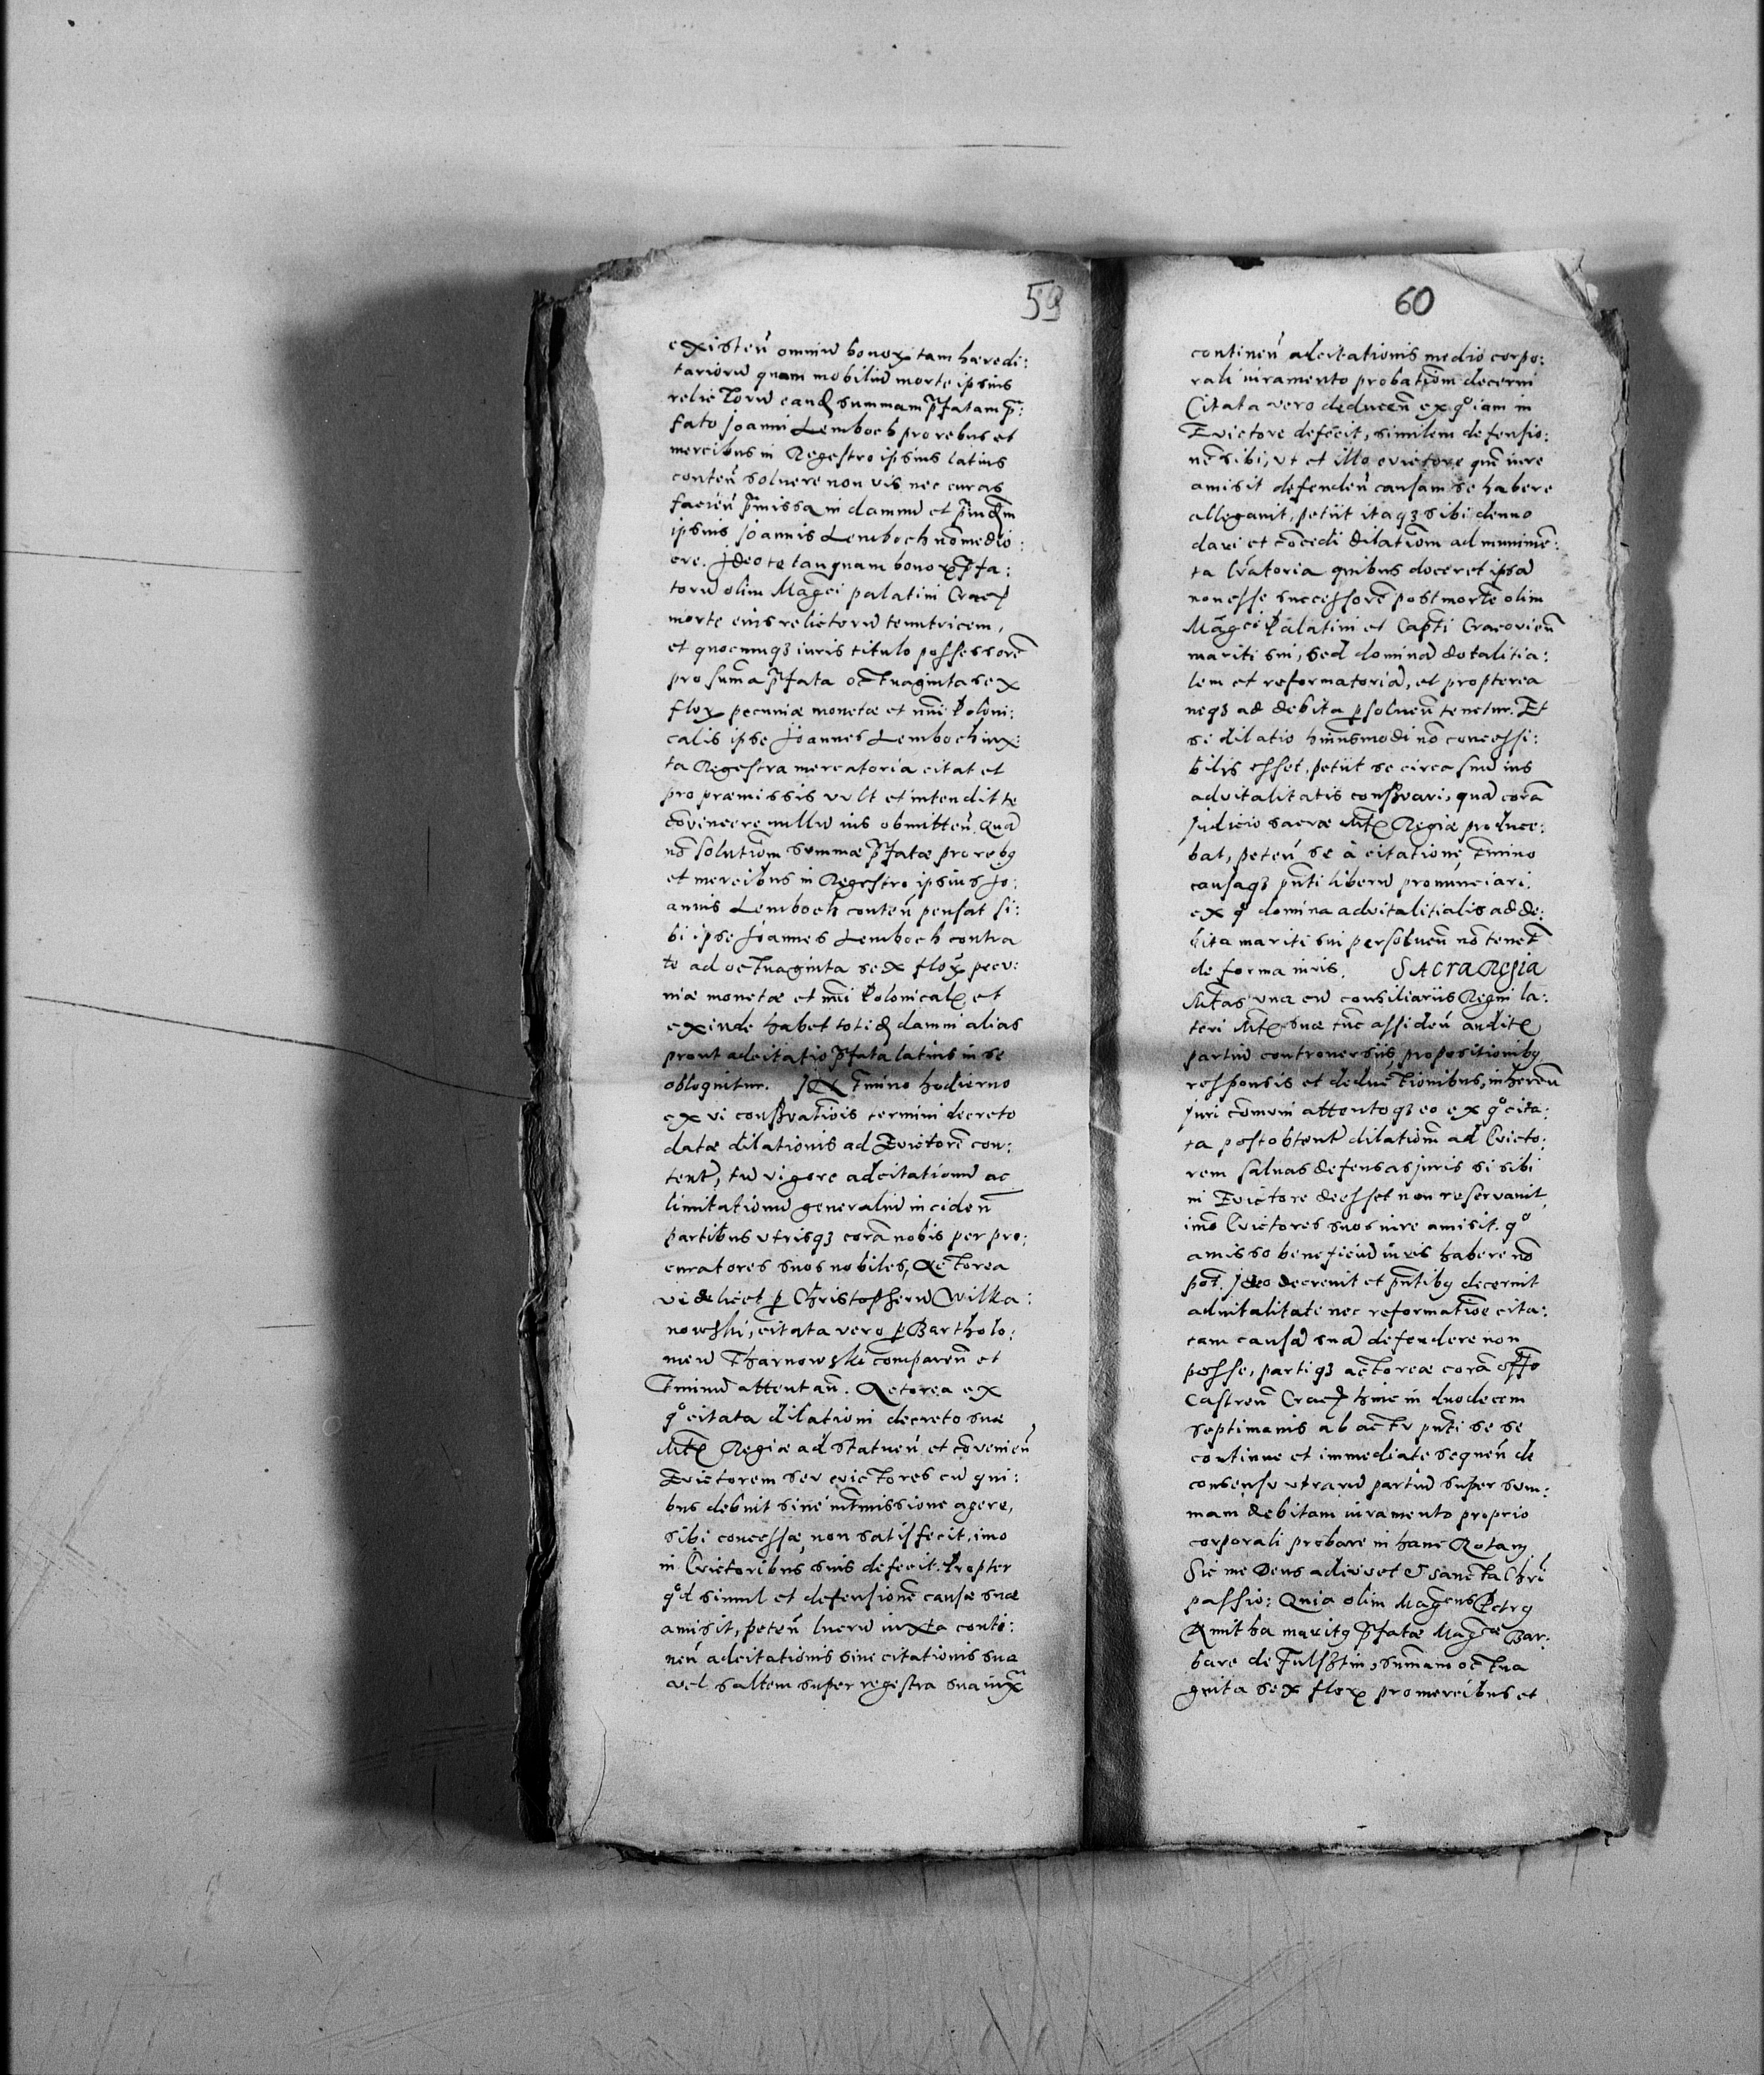 59
existeñ omniũ bonoꝝ tam hæredi:
tariorũ quam mobiliũ morte ipsius
relictorũ eandẽ summam p̃fatam p̃:
fato Joanni Lemboch pro rebus et
mercibus in Regestro ipsius latius
conteñ soluere non vis nec curas
facieñ p̃missa in damnũ et p̃iudm
ipsius Joannis Lemboch nõ medio:
cre. Ideo te tanquam bonoꝝ p̃fa:
torũ olim Magci palatini Cracȩ
morte eius relictorũ tenutricem,
et quocunqꝫ iuris titulo possessorẽ
pro sum̃a p̃fata octuaginta sex
floꝝ pecuniæ monetæ et nũi Poloni:
calis ipse Joannes Lemboch iux:
ta Regestra mercatoria citat et
pro præmissis vult et intendit te
cõvincere nullũ ius obmitteñ. Quã
nõ solutiõm summæ p̃fatæ pro rebꝰ
et mercibus in Regestro ipsius Jo:
annis Lemboch conteñ pensat si:
bi ipse Joannes Lemboch contra
te ad octuaginta sex floꝝ pecu:
niæ monetæ et nũi Polonicalȩ et
exinde habet totidẽ damni alias
prout adcitatio p̃fata latius in se
obloquitur. In t̃mino hodierno
ex vi conservatiõis termini decreto
datæ dilationis ad Evictorẽ con:
tentȩ, tũ vigore adcitationũ ac
limitationũ generaliũ incideñ
partibus vtrisqꝫ corã nobis per pro:
curatores suos nobiles, Actorea
videlicet ꝑ Christopherũ Wilka:
nowski, citata vero ꝑ Bartholo:
meũ Tharnowski compareñ et
T̃minũ attentañ. Actorea ex
qͦ citata dilationi decreto suæ
Mtȩ Regiæ ad statueñ et cõvenieñ
Evictorem seu evictores cũ qui:
bus debuit sine int̃missione agere,
sibi concessæ non satisfecit, imo
in Evictoribus suis defecit. Propter
qͦd simul et defensionẽ causæ suæ
amisit, peteñ lucrũ iuxta conti:
neñ adcitationis siue citationis suæ
vel saltem super regestra sua iux̃
60
contineñ adcitationis medio corpo:
rali iuramento probatiõm decerni
Citata vero deduceñ ex qͦ iam in
Evictore defecit, similem defensio:
nẽ sibi, vt et illo evictore quẽ iure
amisit defendeñ causam se habere
allegauit, petiit itaqꝫ sibi denuo
dari et cõcedi dilatiõm ad munimẽ:
ta l̃ratoria quibus doceret ipsã
non esse successorẽ post mortẽ olim
Magci Palatini et Capt̃i Cracovieñ
mariti sui, sed dominã dotalitia:
lem et reformatoriã, et propterea
neqꝫ ad debita ꝑsolueñ tenetur. Et
si dilatio huiusmodi nõ concessi:
bilis esset, petiit se circa suũ ius
advitalitatis conservari, quã corã
Judicio sacræ Mtȩ Regiæ produce:
bat, peteñ se à citatione, t̃mino
causaqꝫ pñti liberũ pronunciari.
ex qͦ domina advitalitialis ad de:
bita mariti sui persolueñ nõ tenet̃
de forma iuris. SACRA Regia
Mtas vna cũ consiliariis Regni la:
teri Mtȩ suæ tũc assideñ auditȩ
partiũ controuersiis propositionibꝰ
responsis et deductionibus, inhereñ
Juri com̃uni attentoqꝫ eo ex qͦ cita:
ta post obtentȩ dilatiõm ad Evicto:
rem saluas defensas juris si sibi
in Evictore deesset non reservauit,
imo Evictores suos iure amisit. qͦ
amisso beneficiũ iuris habere nõ
pot̃. Ideo decreuit et pñtibꝰ decernit
aduitalitate nec reformatiõe cita:
tam causã suã defendere non
posse, partiqꝫ actoreæ corã off̃o
Castreñ Cracȩ hinc in duodecem
septimanis ab actu pñti se se
continue et immediate sequeñ de
consensu vtrarũ partiũ super sum:
mam debitam iuramento proprio
corporali probare in hanc Rotam
Sic me Deus adiuvet & sancta Chr̃i
passio: Quia olim Magcus Petrꝰ
Kmitha maritꝰ p̃fatæ Magcæ Bar:
bare de Fulsztin, sum̃am octua
ginta sex floꝝ pro mercibus et